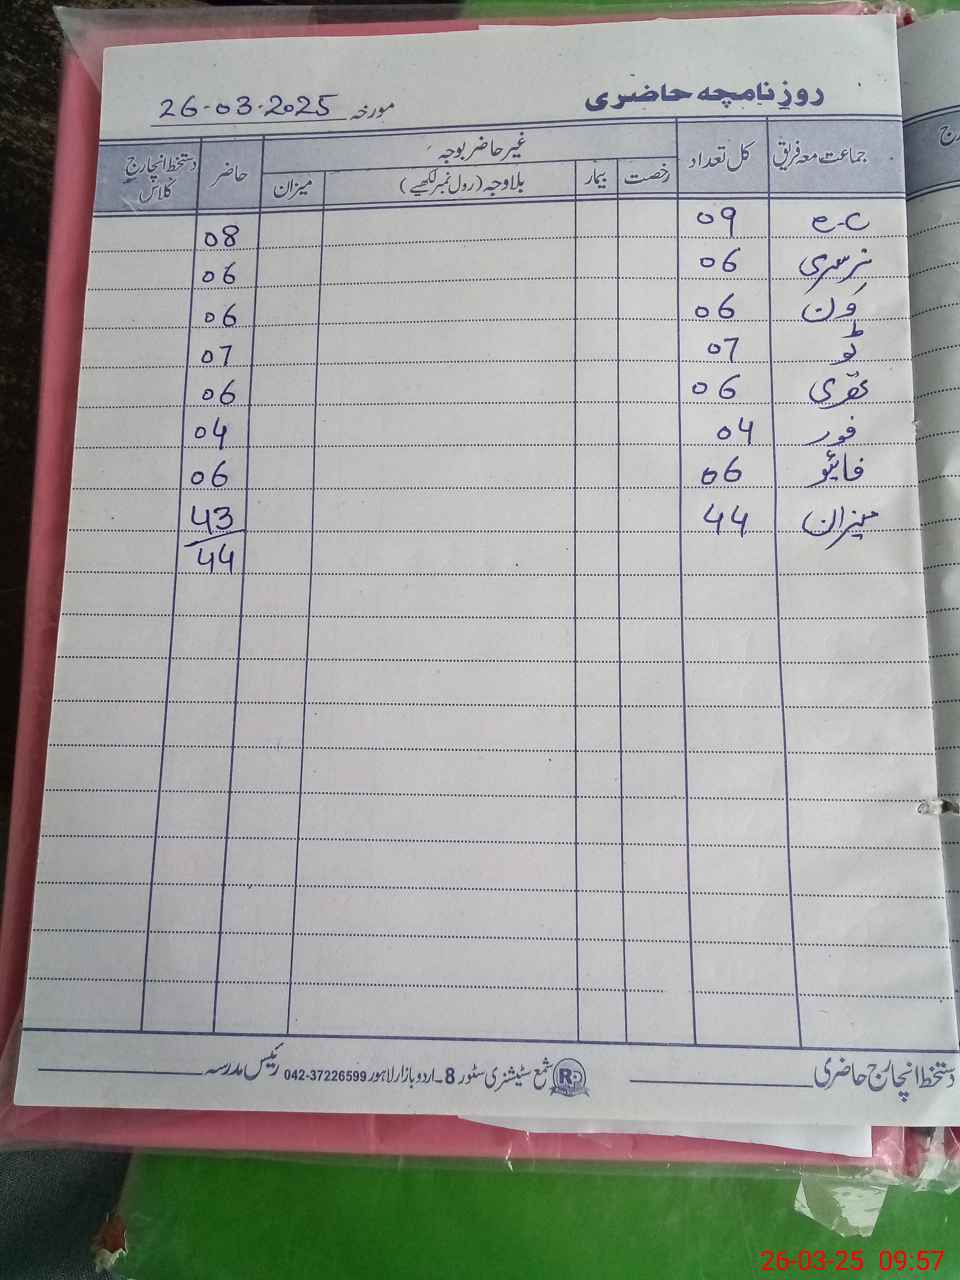 روزنامچہ حاضری
مورخہ 26-03-2025
جماعت معہ فریق کل تعداد غیر حاضر بوجہ حاضر دستخط انچارج کلاس
رخصت بیمار بلاوجہ (رول نمبر لکھیے) میزان
e-c 09 08
نرسری 06 06
ون 06 06
ٹو 07 07
تھری 06 06
فور 04 04
فائیو 06 06
میزان 44 43
44
دستخط انچارج حاضری R شمع سٹیشنری سٹور 8-اردو بازار لاہور 042-37226599 رئیس مدرسہ
26-03-25 09:57